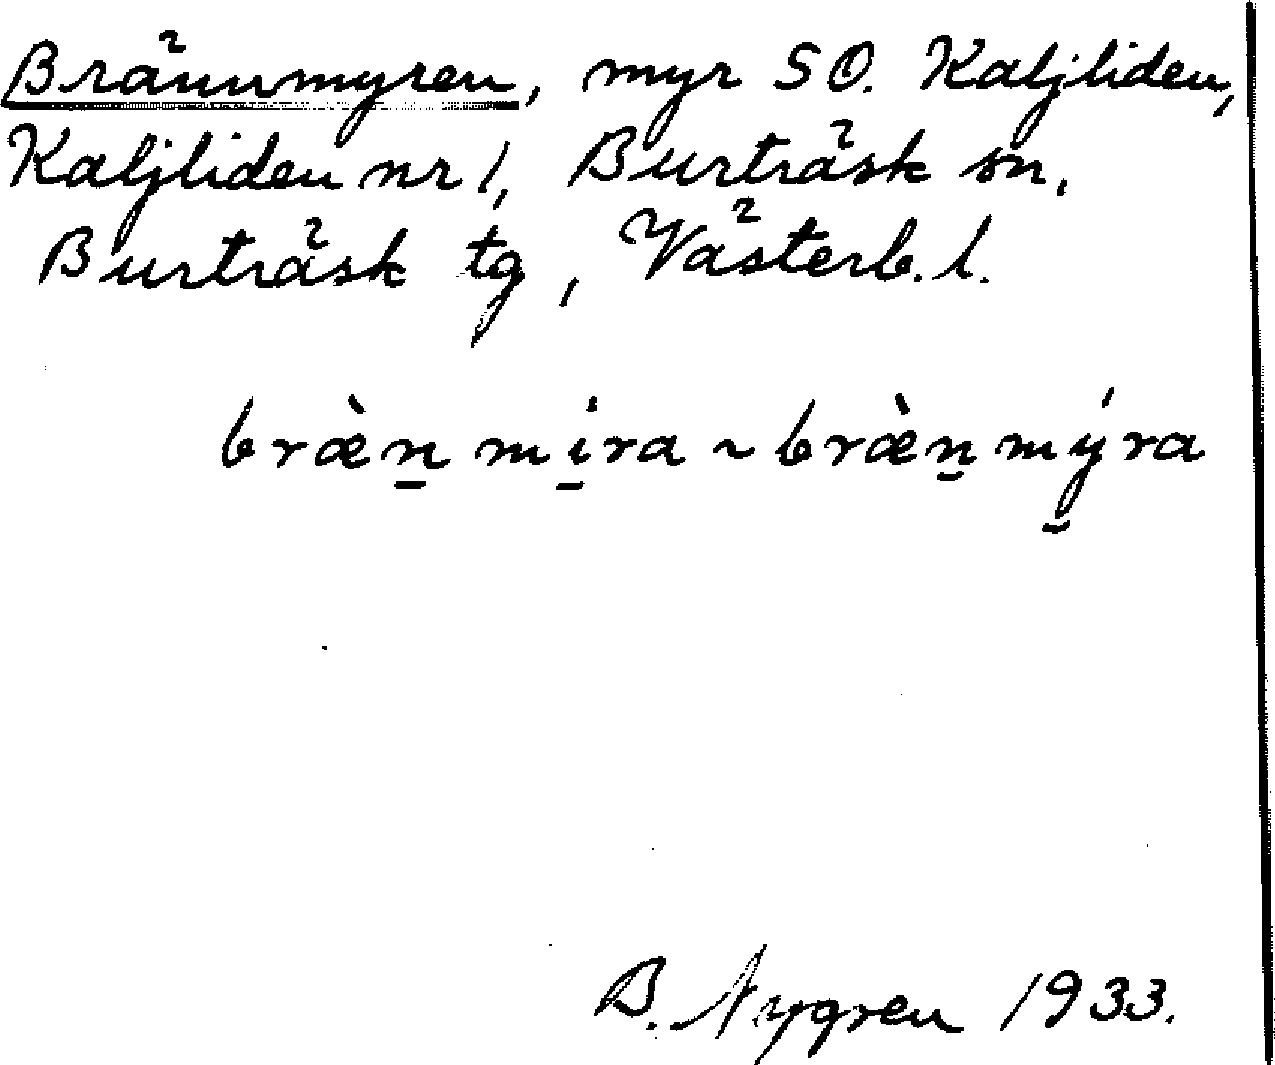 Brännmyren, myr SO. Kaljliden,
Kaljliden nr 1, Burträsk sn,
Burträsk tg, Västerb. l.
bræ̀n̲ mí̲ra ~ bræ̀n̲ mý̲ra
B. Nygren 1933.